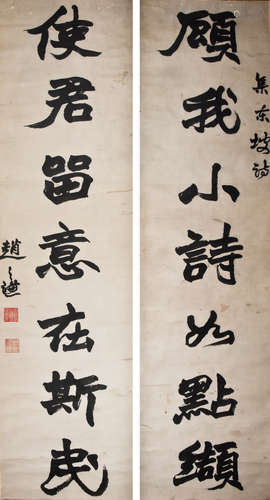 集东坡诗
顧我小詩如點纈
使君留意在斯民
趙之謙